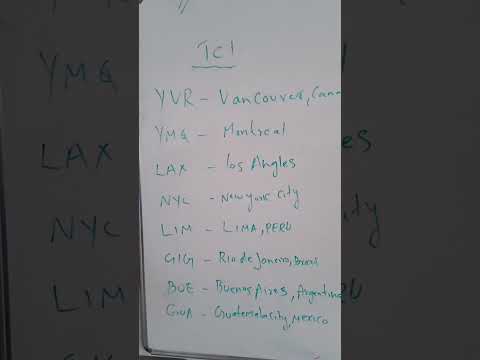 TC1
YVR - Vancouver, Cana
YMQ - Montreal
LAX - los Angles
NYC - New york city
LIM - LIMA, PERU
GIG - Rio de Joneiro, Brazil
BUE - Buenos Aires, Argentina
GUA - Guatemala city, Mexico